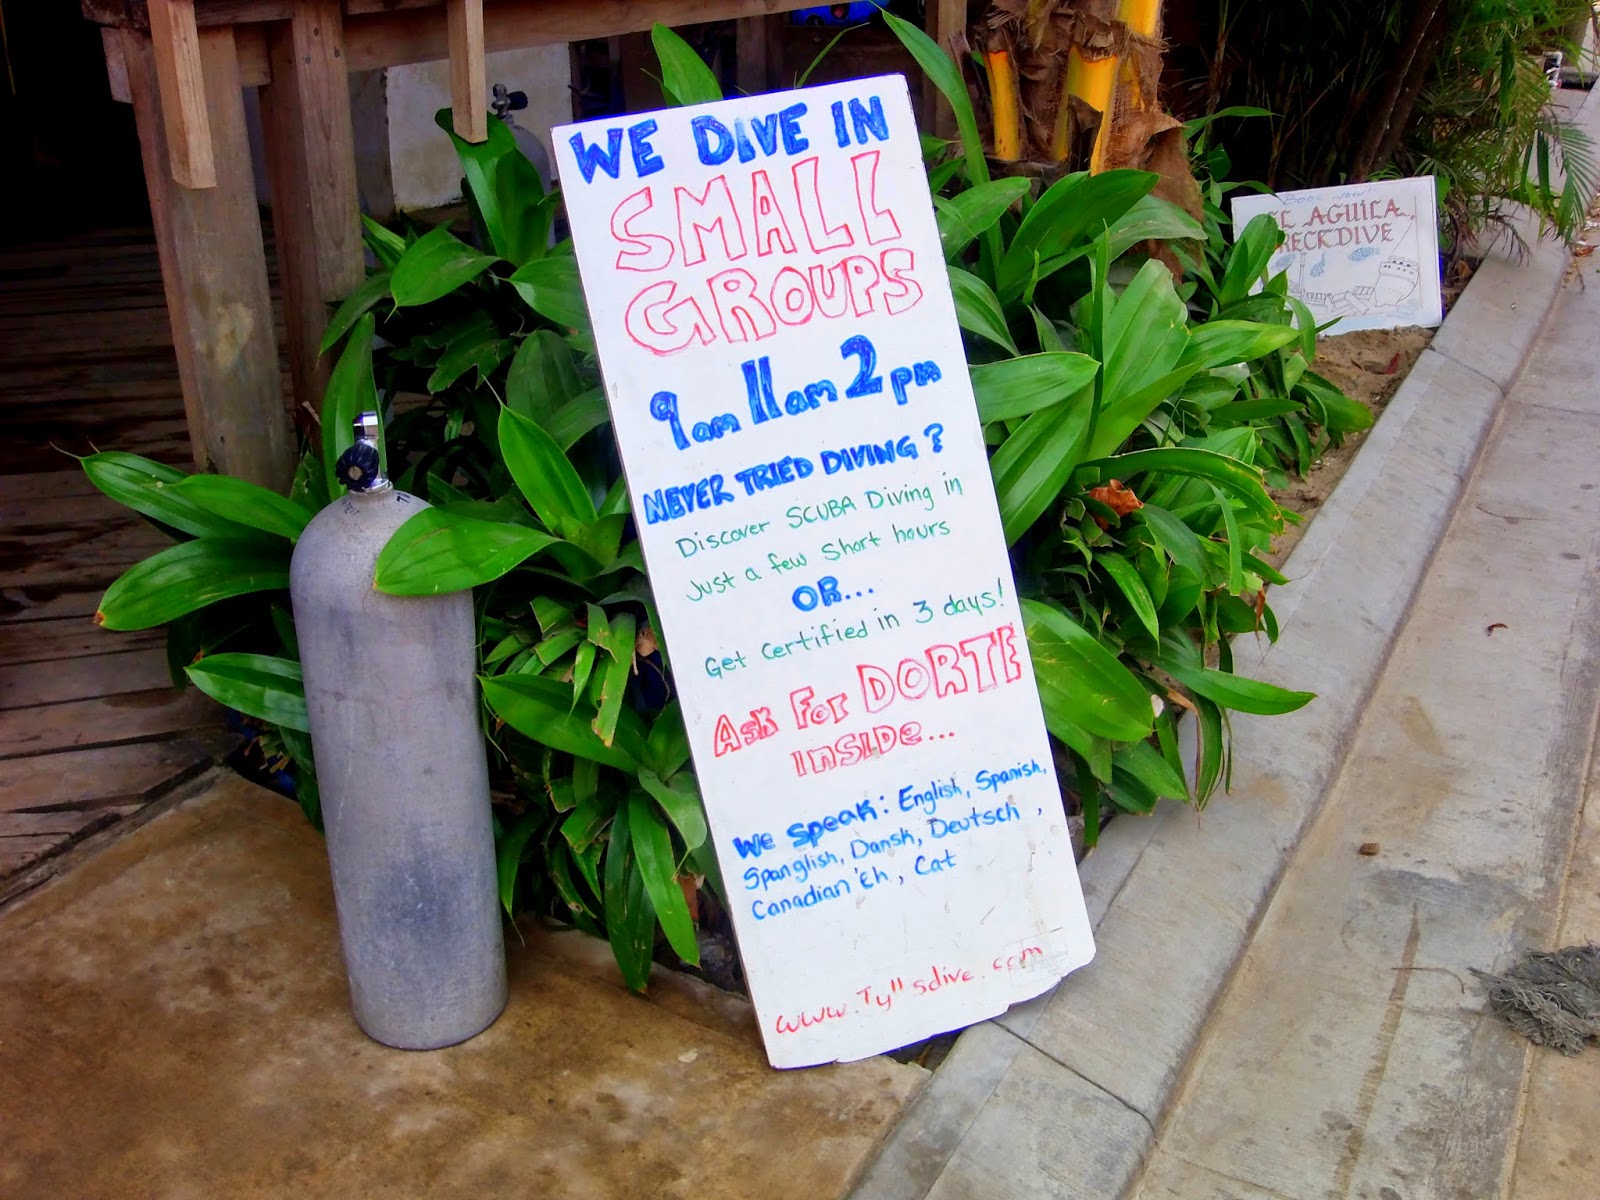 WE DIVE IN
SMALL
GROUPS
9am 11am 2pm
NEVER TRIED DIVING?
Discover SCUBA Diving in
Just a few Short hours
OR...
Get Certified in 3 days!
ASK FOR DORTE
INSIDE...
We speak: English, Spanish,
Spanglish, Dansk, Deutsch,
Canadian 'Eh, Cat
www.Tyllsdive.com
"Book Now"
EL AGUILA
RECKDIVE